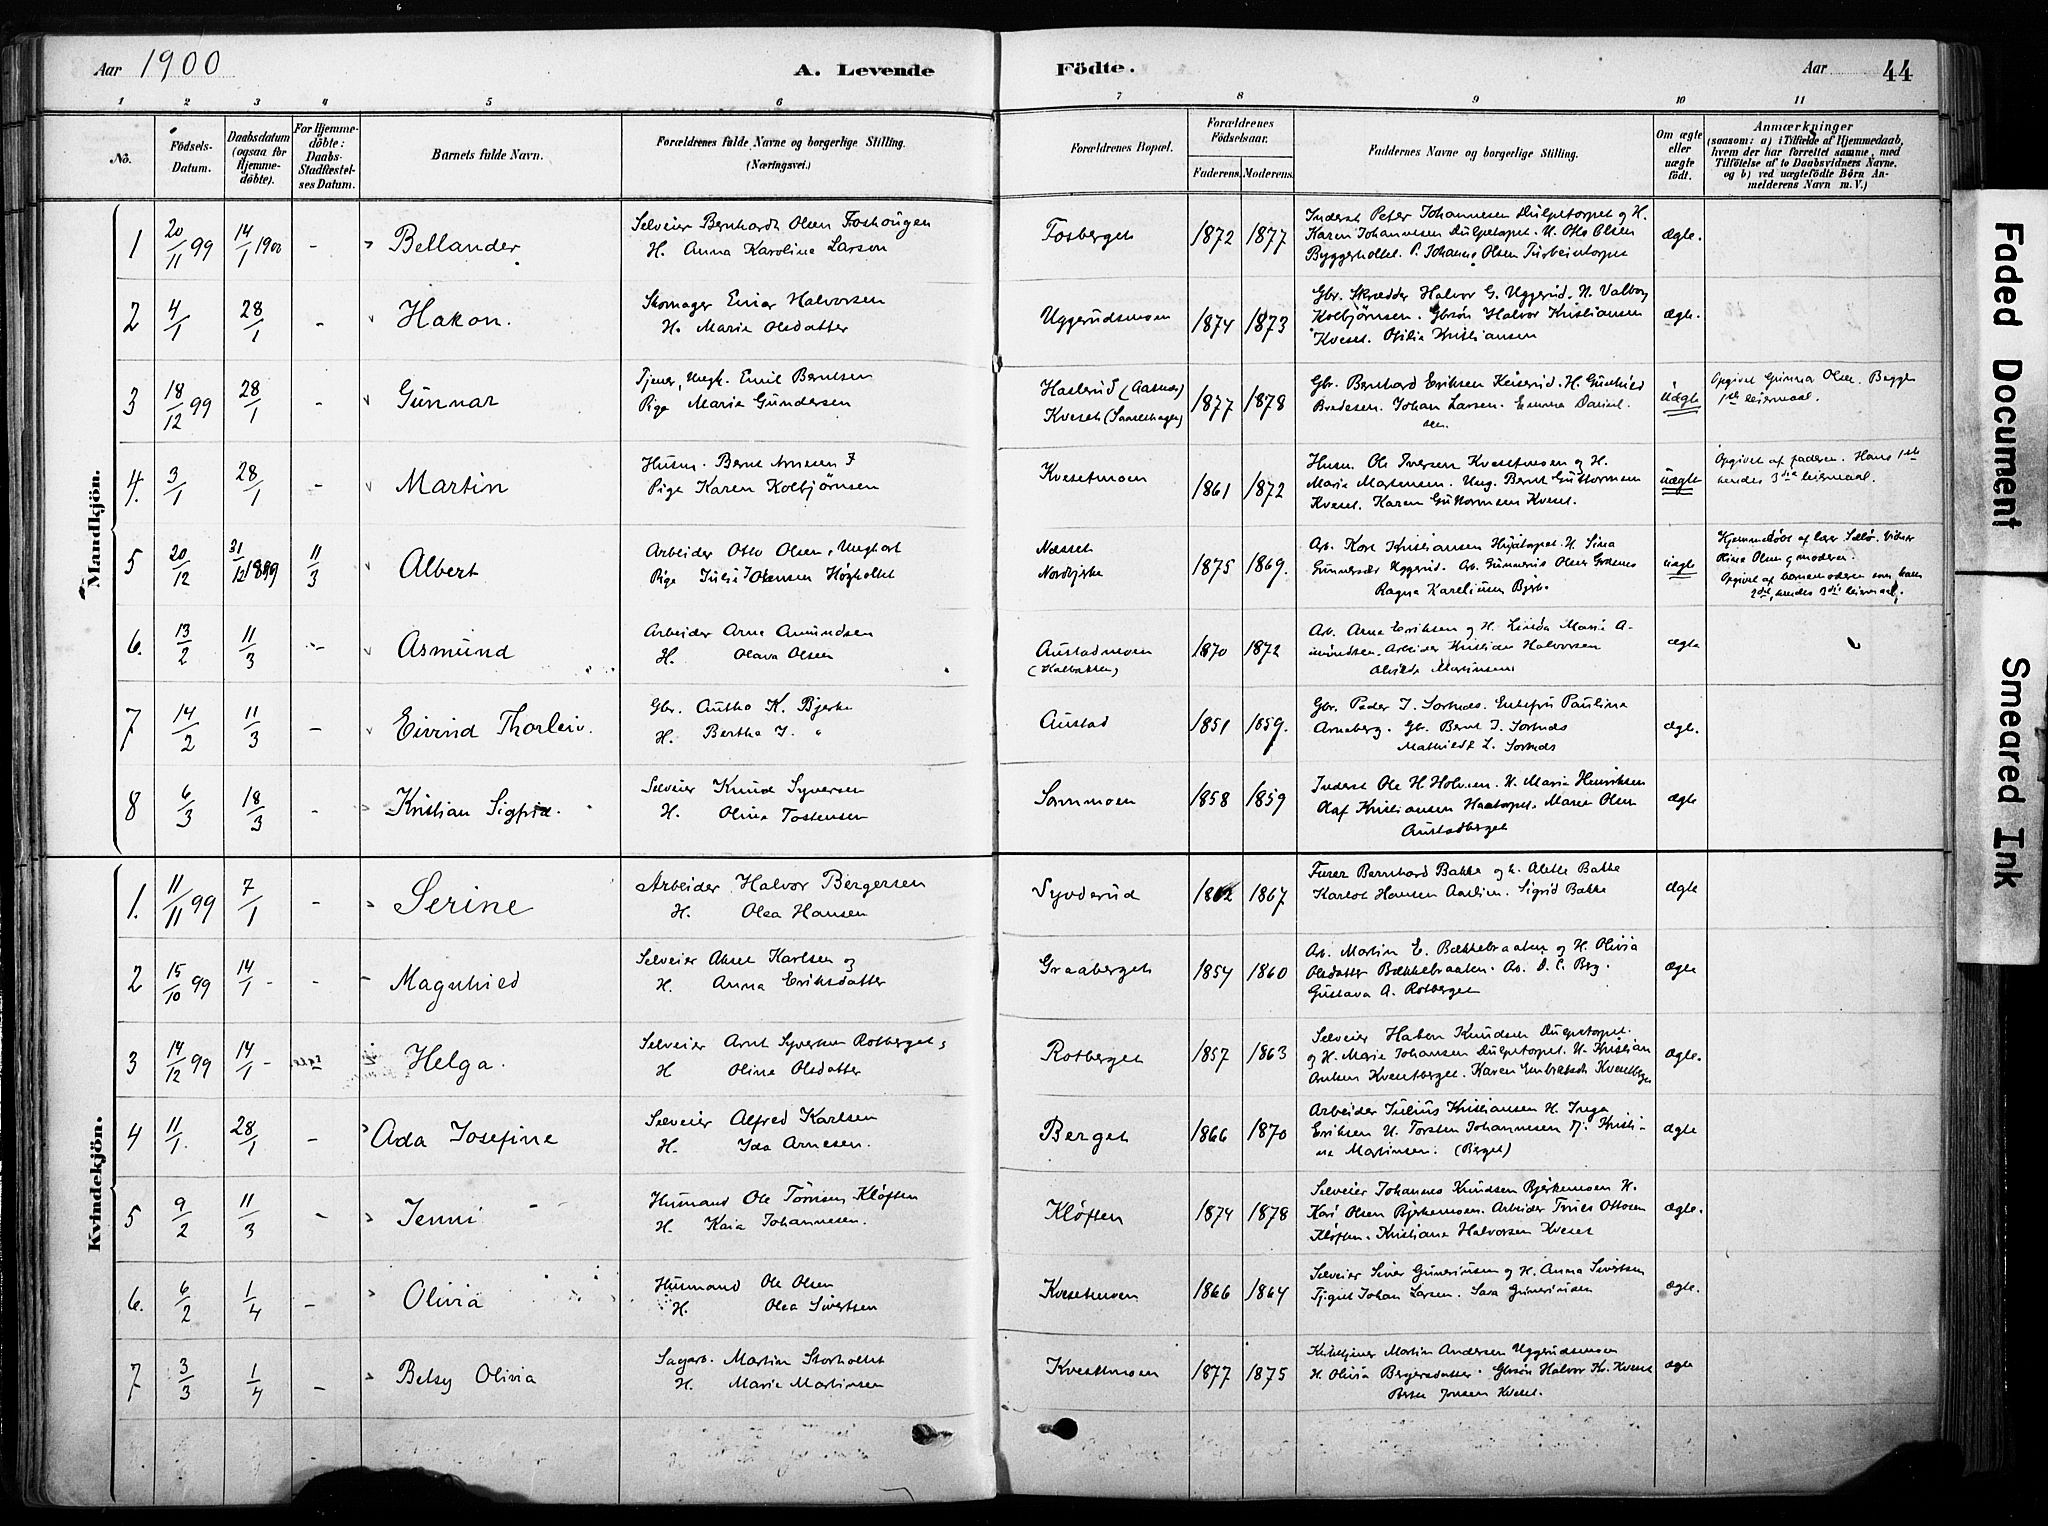 Aar 1900
A. Levende
Födte.
Aar 44
1 2 3 4 5 6 7 8 9 10 11
No.
Födsels-
Datum.
Daabsdatum
(ogsaa for
Hjemme-
döbte).
For Hjemme-
döbte:
Daabs-
Stadfæstel-
ses Datum.
Barnets fulde Navn.
Forældrenes fulde Navne og borgerlige Stilling.
(Næringsvei.)
Forældrenes Bopæl.
Forældrenes
Födselsaar.
Faderens. Moderens.
Faddernes Navne og borgerlige Stilling.
Om ægte
eller
uægte
födt.
Anmærkninger
(saasom: a) i Tilfælde af Hjemmedaab,
hvem der har forrettet samme, med
Tilföielse af to Daabsvidners Navne.
og b) ved uægtefödte Börn An-
melderens Navn m. V.)
Mandkjön.
1 20/11 99 14/1 1900 - Bellander
Selveier Bernhardt Olsen Foshougen
H. Anna Karoline Larson
Fosberget 1872 1877
Inderst Peter Johannesen Dulpetorpet og H.
Karen Johannesen Dulpetorpet. U. Otto Olsen
Byggeholtet. P. Johanne Olsen
ægte.
2 4/1 28/1 - Hakon.
Skomager Einar Halvorsen
H. Marie Olsdatter
Uggerudsmoen 1874 1873
Gbr. Skrædder Halvor G. Uggerud. H. Valborg
Kolbjörnsen. Gbrsön Halvor Kristiansen
Kveset. Otilie Kristiansen
ægte.
3 18/12 99 28/1 - Gunnar
Tjener, Ungk. Emil Berntsen
Pige Marie Gundersen
Haslerud (Aasnes)
Kveset 1877 1878
Gbr. Bernhard Eriksen Keiserud. H. Gunhild
Bredesen. Johan Larsen. Emma Daniel-
sen.
uægte
Opgivet Gunna Olsen. Begges
1ste leiermaal.
4. 3/1 28/1 - Martin
Husm. Bernt Arnesen
Pige Karen Kolbjørnsen
Kvesetmoen 1861 1872
Husm. Ole Iversen Kvesetmoen og H.
Marie Martensen. Ung. Bernt Guttormsen
Kveset. Karen Guttormsen Kveset.
uægte
Opgivet af faderen. Hans 1ste
hendes 3die leiermaal.
5 20/12 31/12 1899 11/3 Albert
Arbeider Otto Olsen, Ungkarl
Pige Julie Olausen Högholtet
Næsset
Nordbjerke 1875 1869.
Arb. Kore Kristiansen U. Sina
Gunnersdtr Uggerud. Arb. Gunnerius Olsen Graanes
Ragna Karelinsen Bjerk.
uægte
Hjemmedøbt af lærer
Olsen og moderen.
Opgivet af barnemoderen som hans
2det, hendes 3die leiermaal.
6. 13/2 11/3 - Asmund
Arbeider Arne Amundsen
H. Olava Olsen
Austadmoen
(Kalbakken) 1870 1872
Arb. Arne Eriksen og H. Linda Marie A-
mundsen. Arbeider Kristian Halvorsen
Alvilde Martinsen
ægte
7 14/2 11/3 - Eivind Thorleiv.
Gbr. Autho K. Bjerke
H. Berthe J. "
Austad 1851 1859.
Gbr. Peder J. Sornes. Enkefru Pauline
Arneberg. Gb. Bernt J. Sornes
Mathilde L. Sornes
ægte.
8 6/3 18/3 - Kristian Sigfrid.
Selveier Knud Syversen
H. Oline Tostensen
Sormoen 1858 1859
Inderst Ole H. Holmen. H. Maria Henriksen
Olaf Kristiansen Haatorpet. Maren Olsen
Austadberget
ægte
Kvindekjön.
1. 11/11 99 7/1 - Serine
Arbeider Halvor Bergersen
H. Olea Hansen
Syvderud 1862 1867
Furer Bernhard Bakke og h. Alette Bakke
Karlot Hansen Aaslien. Sigrid Bakke
ægte
2 15/10 99 14/1 - - Magnhild
Selveier Aksel Karlsen og
H. Anna Eriksdatter
Graaberget 1854 1860
Arb. Martin E. Bækkebraaten og H. Olivia
Olsdatter Bækkebraaten. Arb. O. E. Berg.
Gustava A. Rotberget
ægte
3 14/12 99 14/1 - Helga.
Selveier Arnt Syversen Rotberget,
H Oline Olsdatter
Rotberget 1857 1863
Selveier Haken Knudsen Dulpetorpet.
og H. Marie Johansen Dulpetorpet. U. Kristian
Antsen Kvesetberget. Karen Kvesetberget
ægte.
4 11/1. 28/1 - Ada Josefine
Selveier Alfred Karlsen
H. Ida Arnesen.
Berget 1866 1870
Arbeider Julius Kristiansen H. Inga
Eriksen U. Torsten Johannesen Tj. Kristi-
ne Martinsen. (Berget)
ægte
5 9/2 11/3 - Jenni
Husmand Ole Kløften
H. Kaia Johannesen.
Kløften 1874 1878
Selveier Johannes Knudsen Bjerkemoen H.
Kari Olsen Bjerkemoen. Arbeider Ottosen
Kløften. Kristiane Halvorsen Kveset
ægte.
6. 6/2 1/4 - Olivia
Husmand Ole Olsen
H. Olea Sivertsen
Kvesetmoen 1866 1864
Selveier Simer Gunerinsen og H. Anna Sivertsen
Johan Larsen. Sara Gunerinsen
ægte.
7 3/3 1/4 - Betsy Olivia
Sagarb. Martin Storholtet
H. Marie Martinsen
Kvesetmoen 1877 1875
Kirketjener Martin Andersen Uggerudsmoen
H. Olivia Bergersdatter. Gbrsön Halvor Kr. Kveset
Jonsen Kveset.
ægte
Faded Document
Smeared Ink